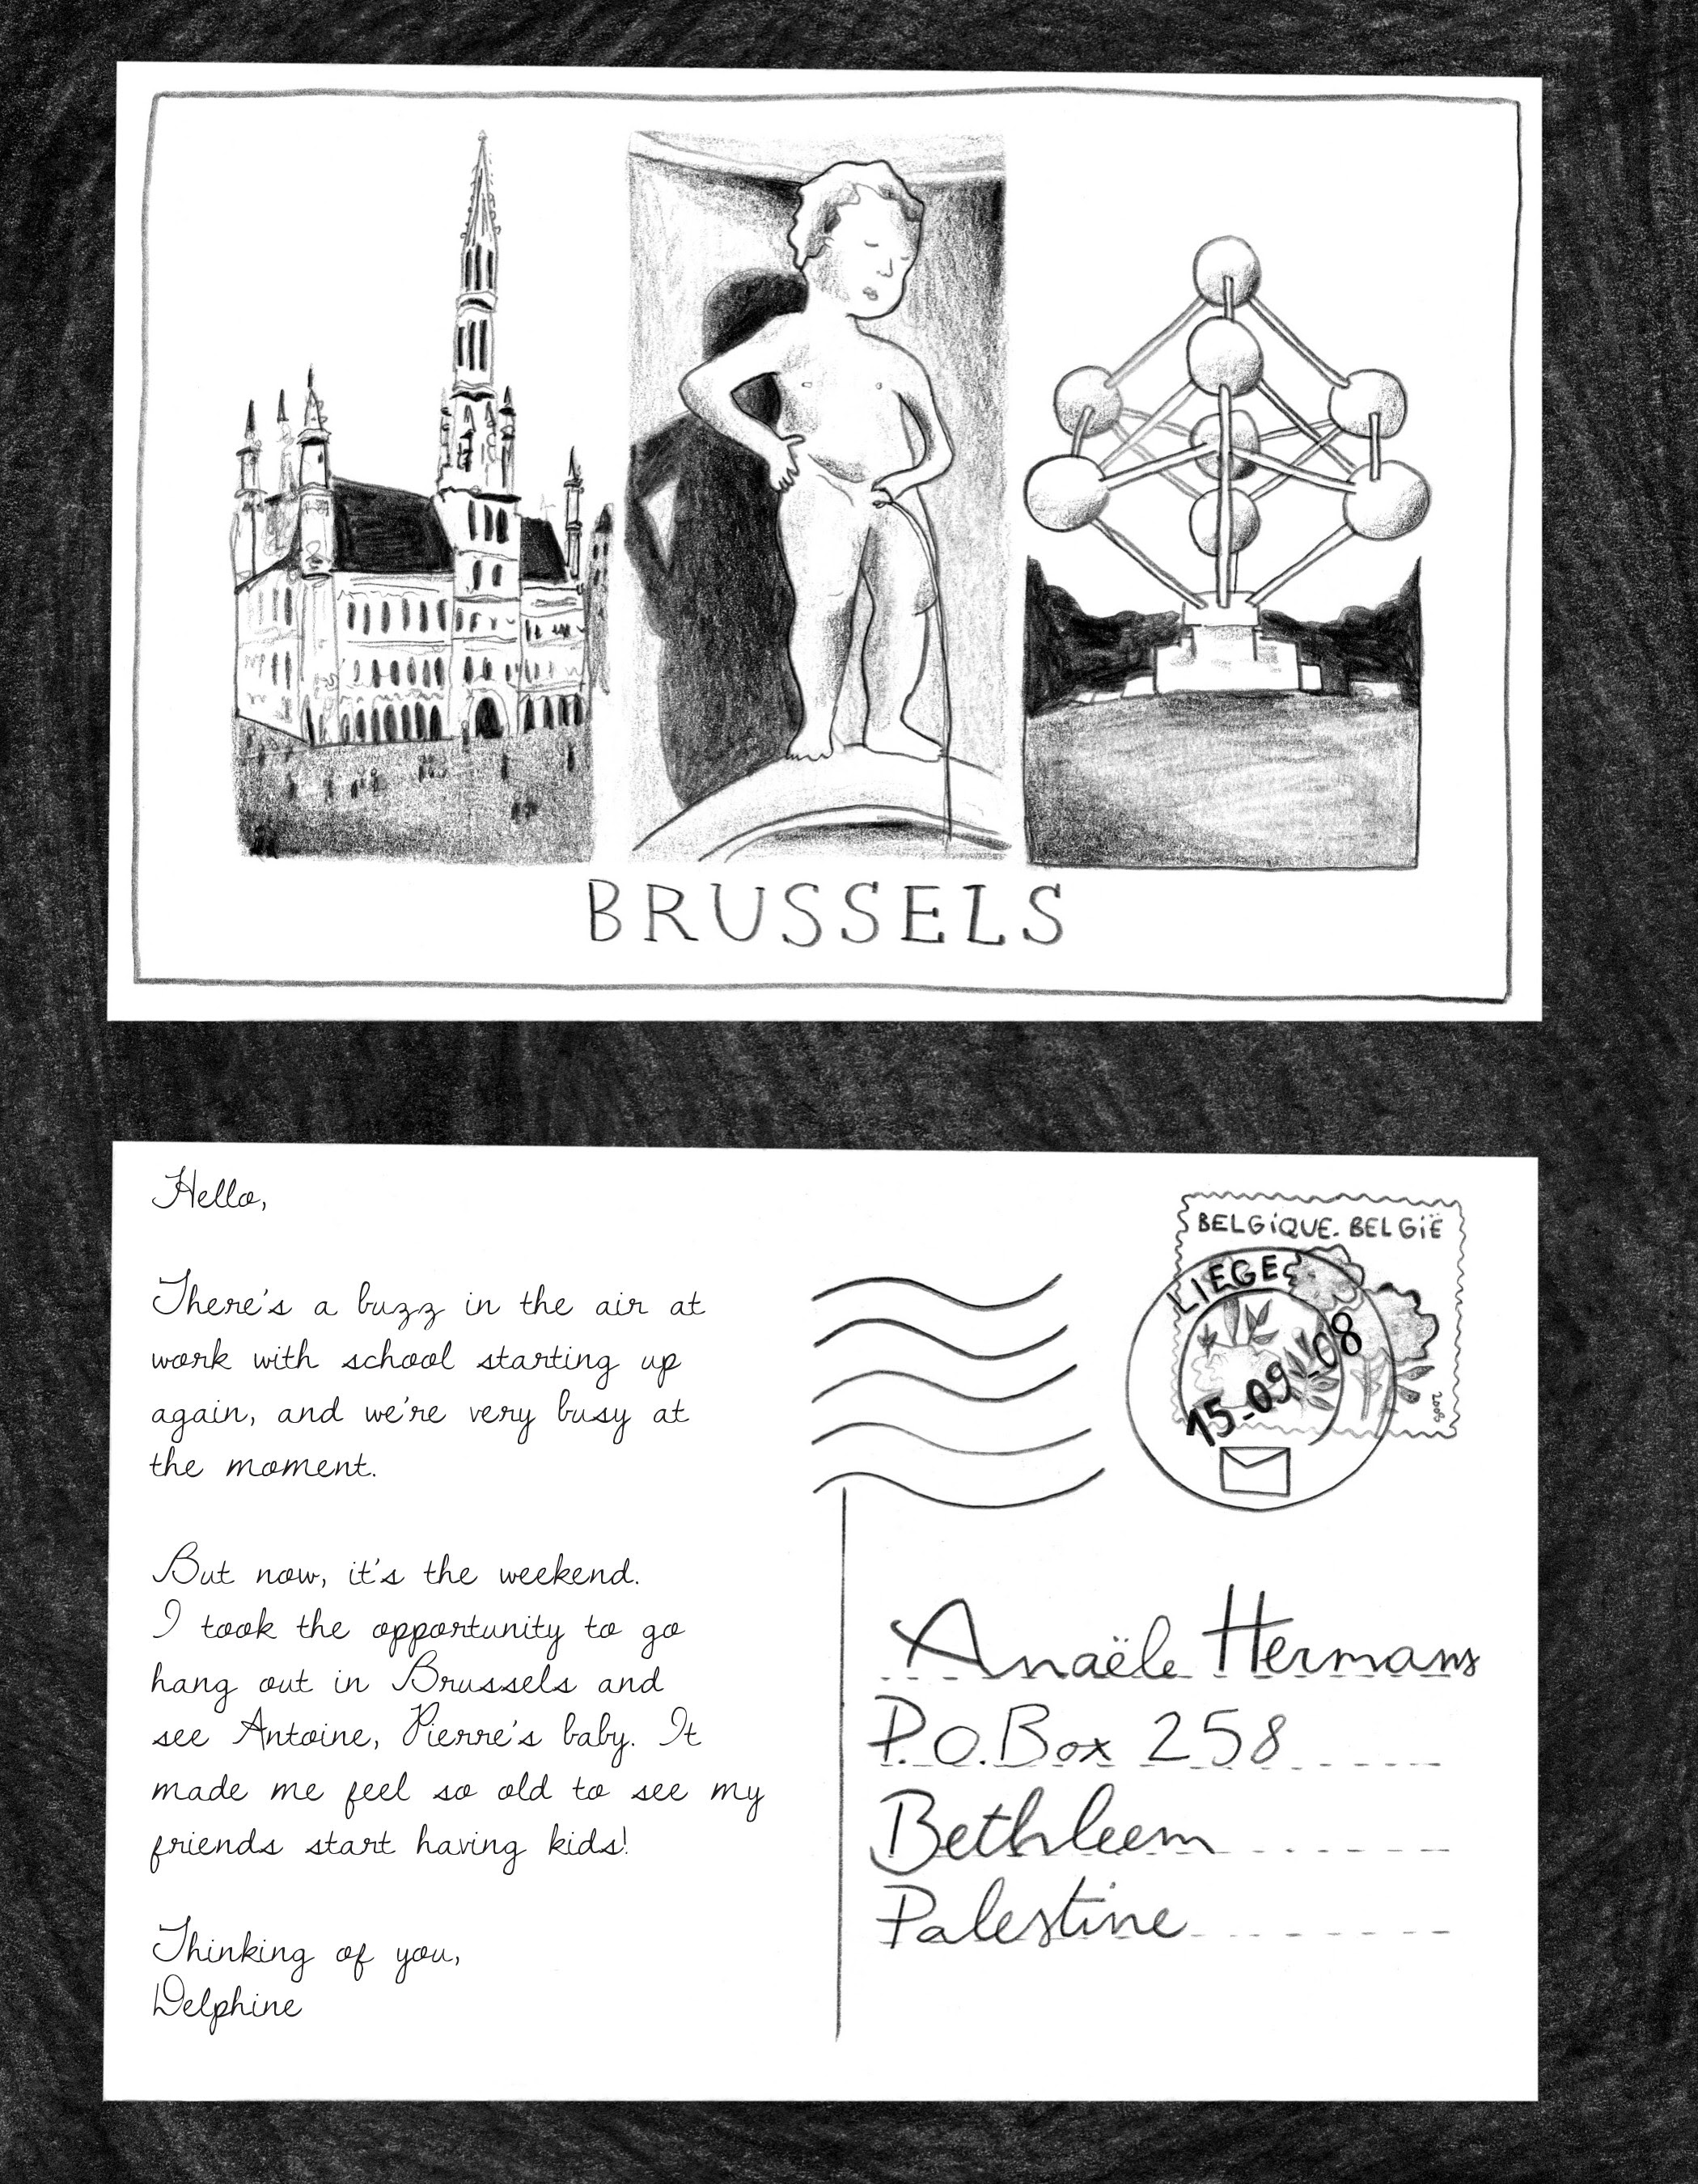 BRUSSELS
Hello,
There's a buzz in the air at
work with school starting up
again, and we're very busy at
the moment.
But now, it's the weekend.
I took the opportunity to go
hang out in Brussels and
see Antoine, Pierre's baby. It
made me feel so old to see my
friends start having kids!
Thinking of you,
Delphine
BELGIQUE. BELGIË
LIEGE
15-09-08
2008
Anaële Hermans
P.O.Box 258
Bethleem
Palestine